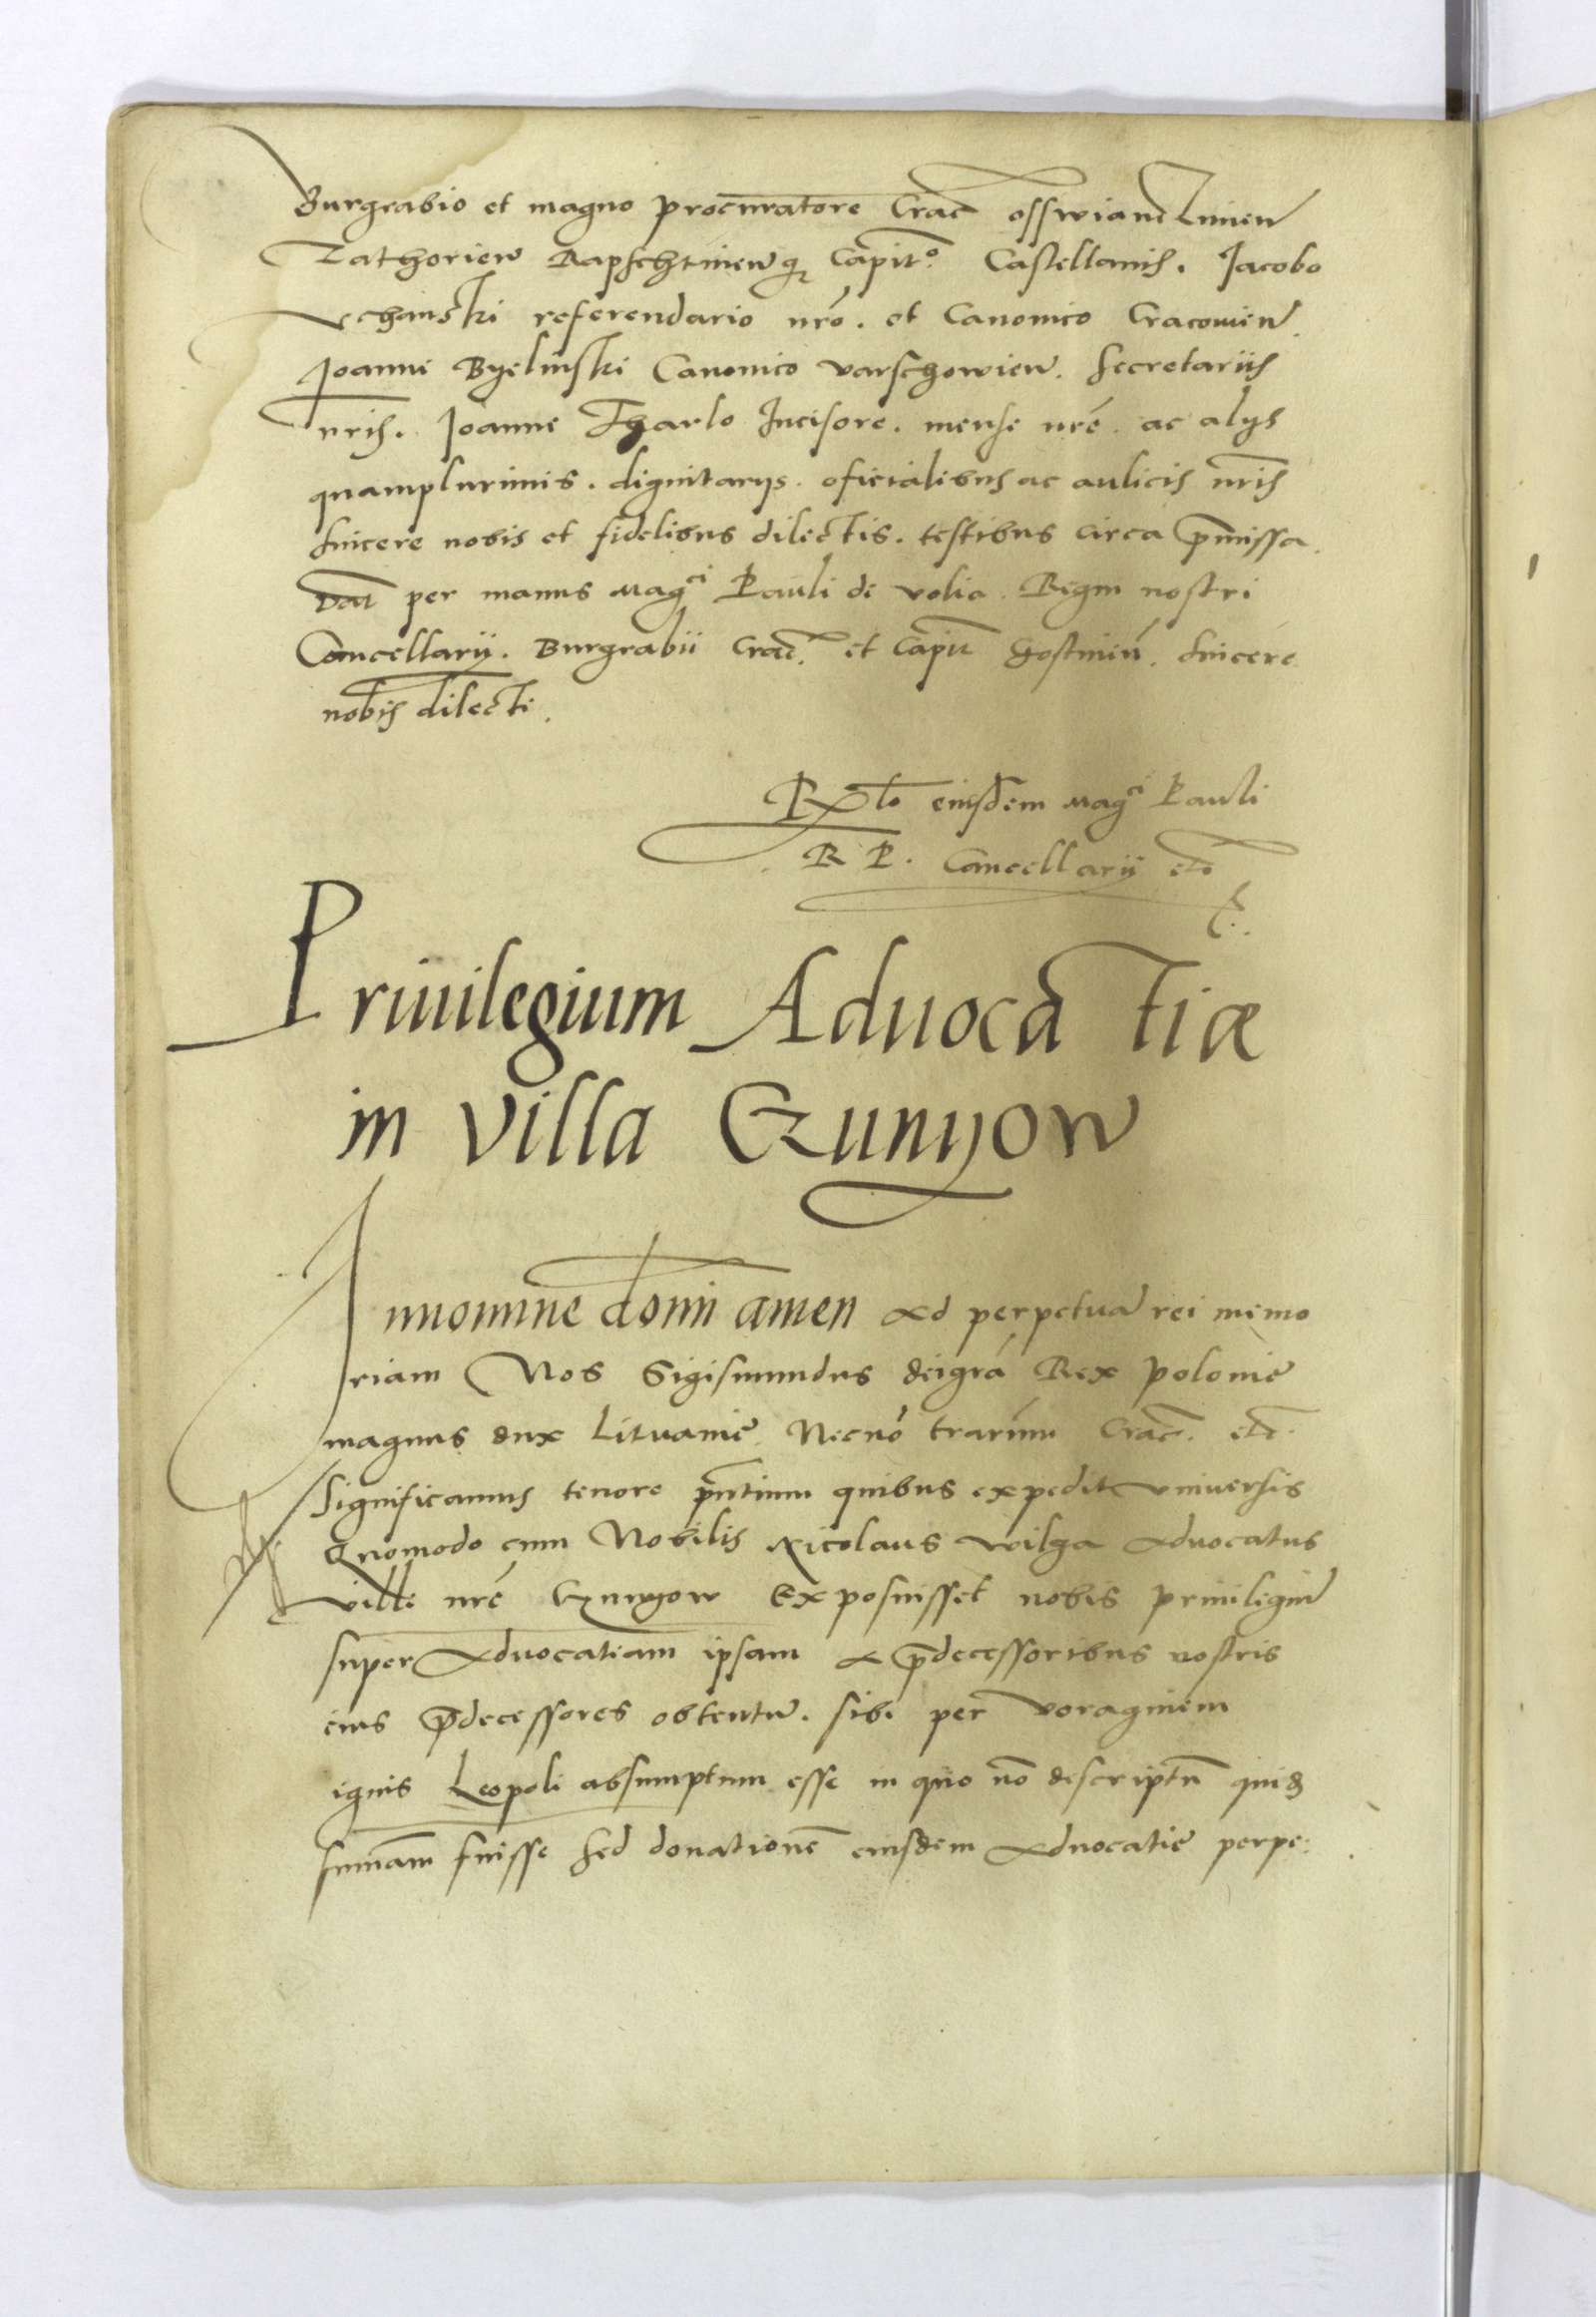 Burgrabio et magno procuratore Crac osswianczimen
Zathorien Rapschtinenq Capit°. Castellanis. Jacobo
Vchanski referendario nrõ. et Canonico Cracovien
Joanni Byelinski Canonico varschowien. secretariis
nris. Joanne Tharlo Incisore. mense nrẽ. ac alys
quamplurimis. dignitarys. oficialibus ac aulicis nris
sincere nobis et fidelibus dilectis. testibus circa p̃missa.
Dat per manus Mag^ci Pauli de volia. Regni nostri
Cancellarij. Burgrabii Crac. et Capit gostinin̄. sincere
nobis dilecti.
Rlõ eiusdem Mag^ci Pauli
R P. Cancellarij etc
Priuilegium Aduocatiæ
in villa Czunyow
In nomine domi amen Ad perpetuā rei memo
riam Nos Sigismundus dei grã Rex polonie
magnus dux Lituanie Necnõ trarum Crac. etc.
significamus tenore pñtium quibus expedit vniuersis
Quomodo cum Nobilis Nicolaus wilga Aduocatus
ville nrẽ Czunyow Exposuisset nobis priuilegiũ
super Aduocatiam ipsam A p̃decessoribus nostris
eius p̃decessores obtentũ. sibi per voraginem
ignis Leopoli absumptum esse in quo nõ descriptũ quid
summam fuisse sed donationẽ eiusdem Aduocatie perpe: